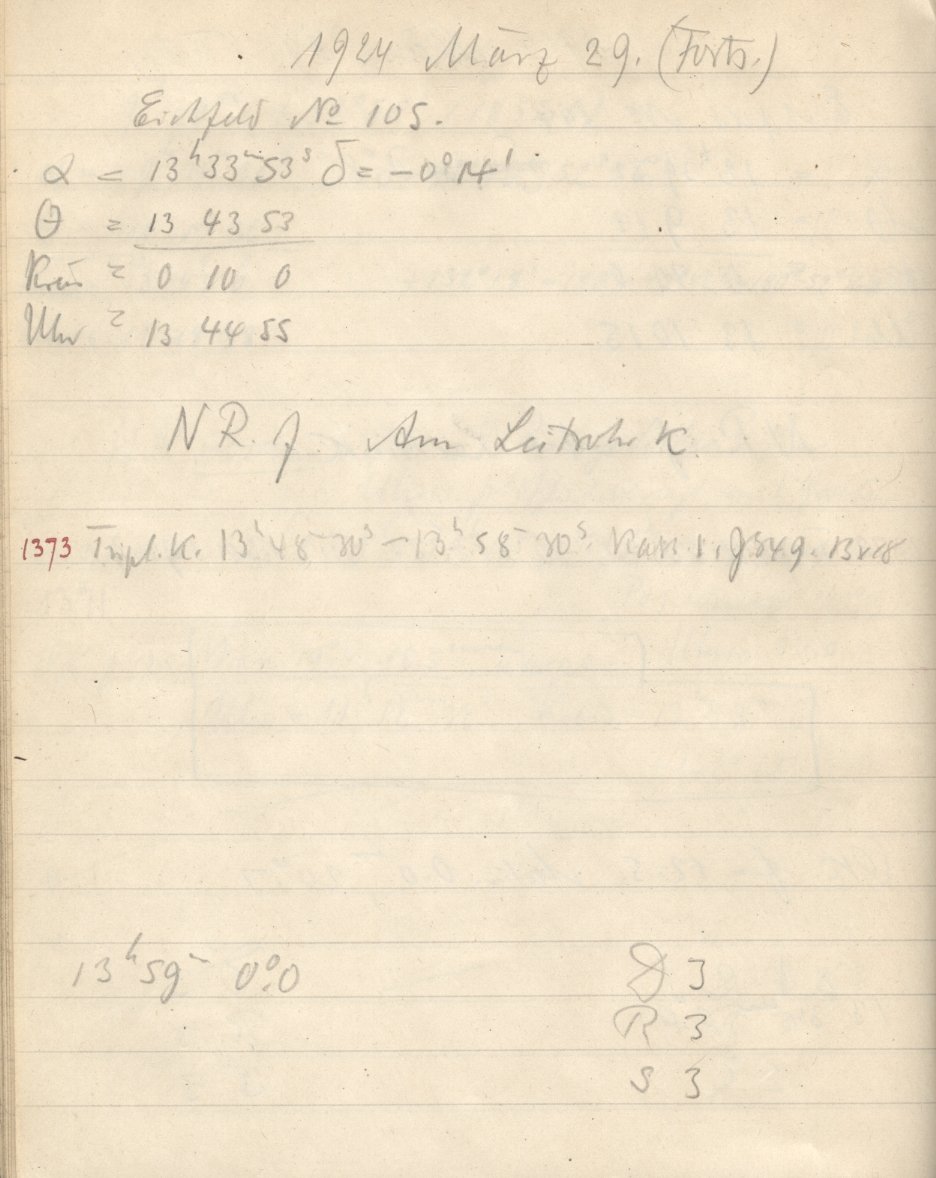 1924 März 29. (Forts.)
Eichfeld No 105.
α = 13h 33m 53s δ = -0° 14'
θ = 13 43 53
= 0 10 0
Uhr = 13 44 55
N R. J. Am Leitrohr K.
1373 Tripl. K. 13h 48m 30s - 13h 58m 30s. Kass 1. J 549.
13h 59m 0°.0 D 3
R 3
S 3